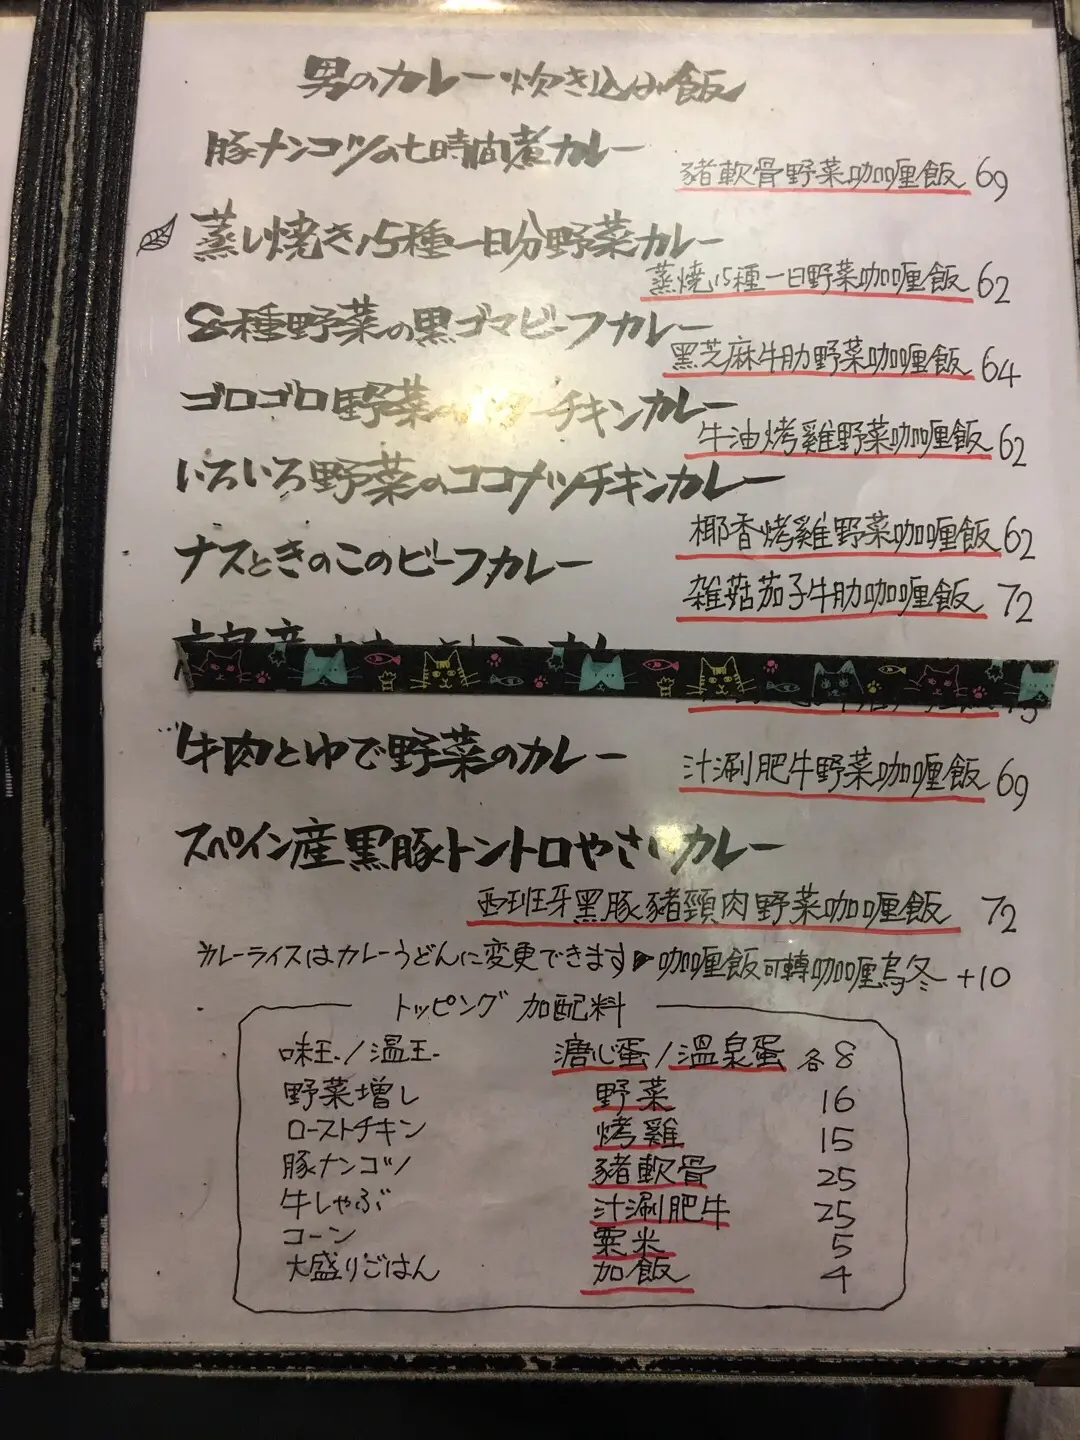 男のカレー炊き込み飯
豚ナンコツの七時間煮カレー
豬軟骨野菜咖喱飯 69
蒸し焼き15種一日分野菜カレー
蒸燒15種一日野菜咖喱飯 62
8種野菜の黒ゴマビーフカレー
黑芝麻牛肋野菜咖喱飯 64
ゴロゴロ野菜のバターチキンカレー
牛油烤雞野菜咖喱飯 62
いろいろ野菜のココナッツチキンカレー
椰香烤雞野菜咖喱飯 62
ナスときのこのビーフカレー
雜菇茄子牛肋咖喱飯 72
牛肉とゆで野菜のカレー
汁涮肥牛野菜咖喱飯 69
スペイン産黒豚トントロやさいカレー
西班牙黑豚豬頸肉野菜咖喱飯 72
カレーライスはカレーうどんに変更できます▶咖喱飯可轉咖喱烏冬 +10
トッピング 加配料
味玉/温玉 溏心蛋/溫泉蛋 各8
野菜増し 野菜 16
ローストチキン 烤雞 15
豚ナンコツ 豬軟骨 25
牛しゃぶ 汁涮肥牛 25
コーン 粟米 5
大盛りごはん 加飯 4